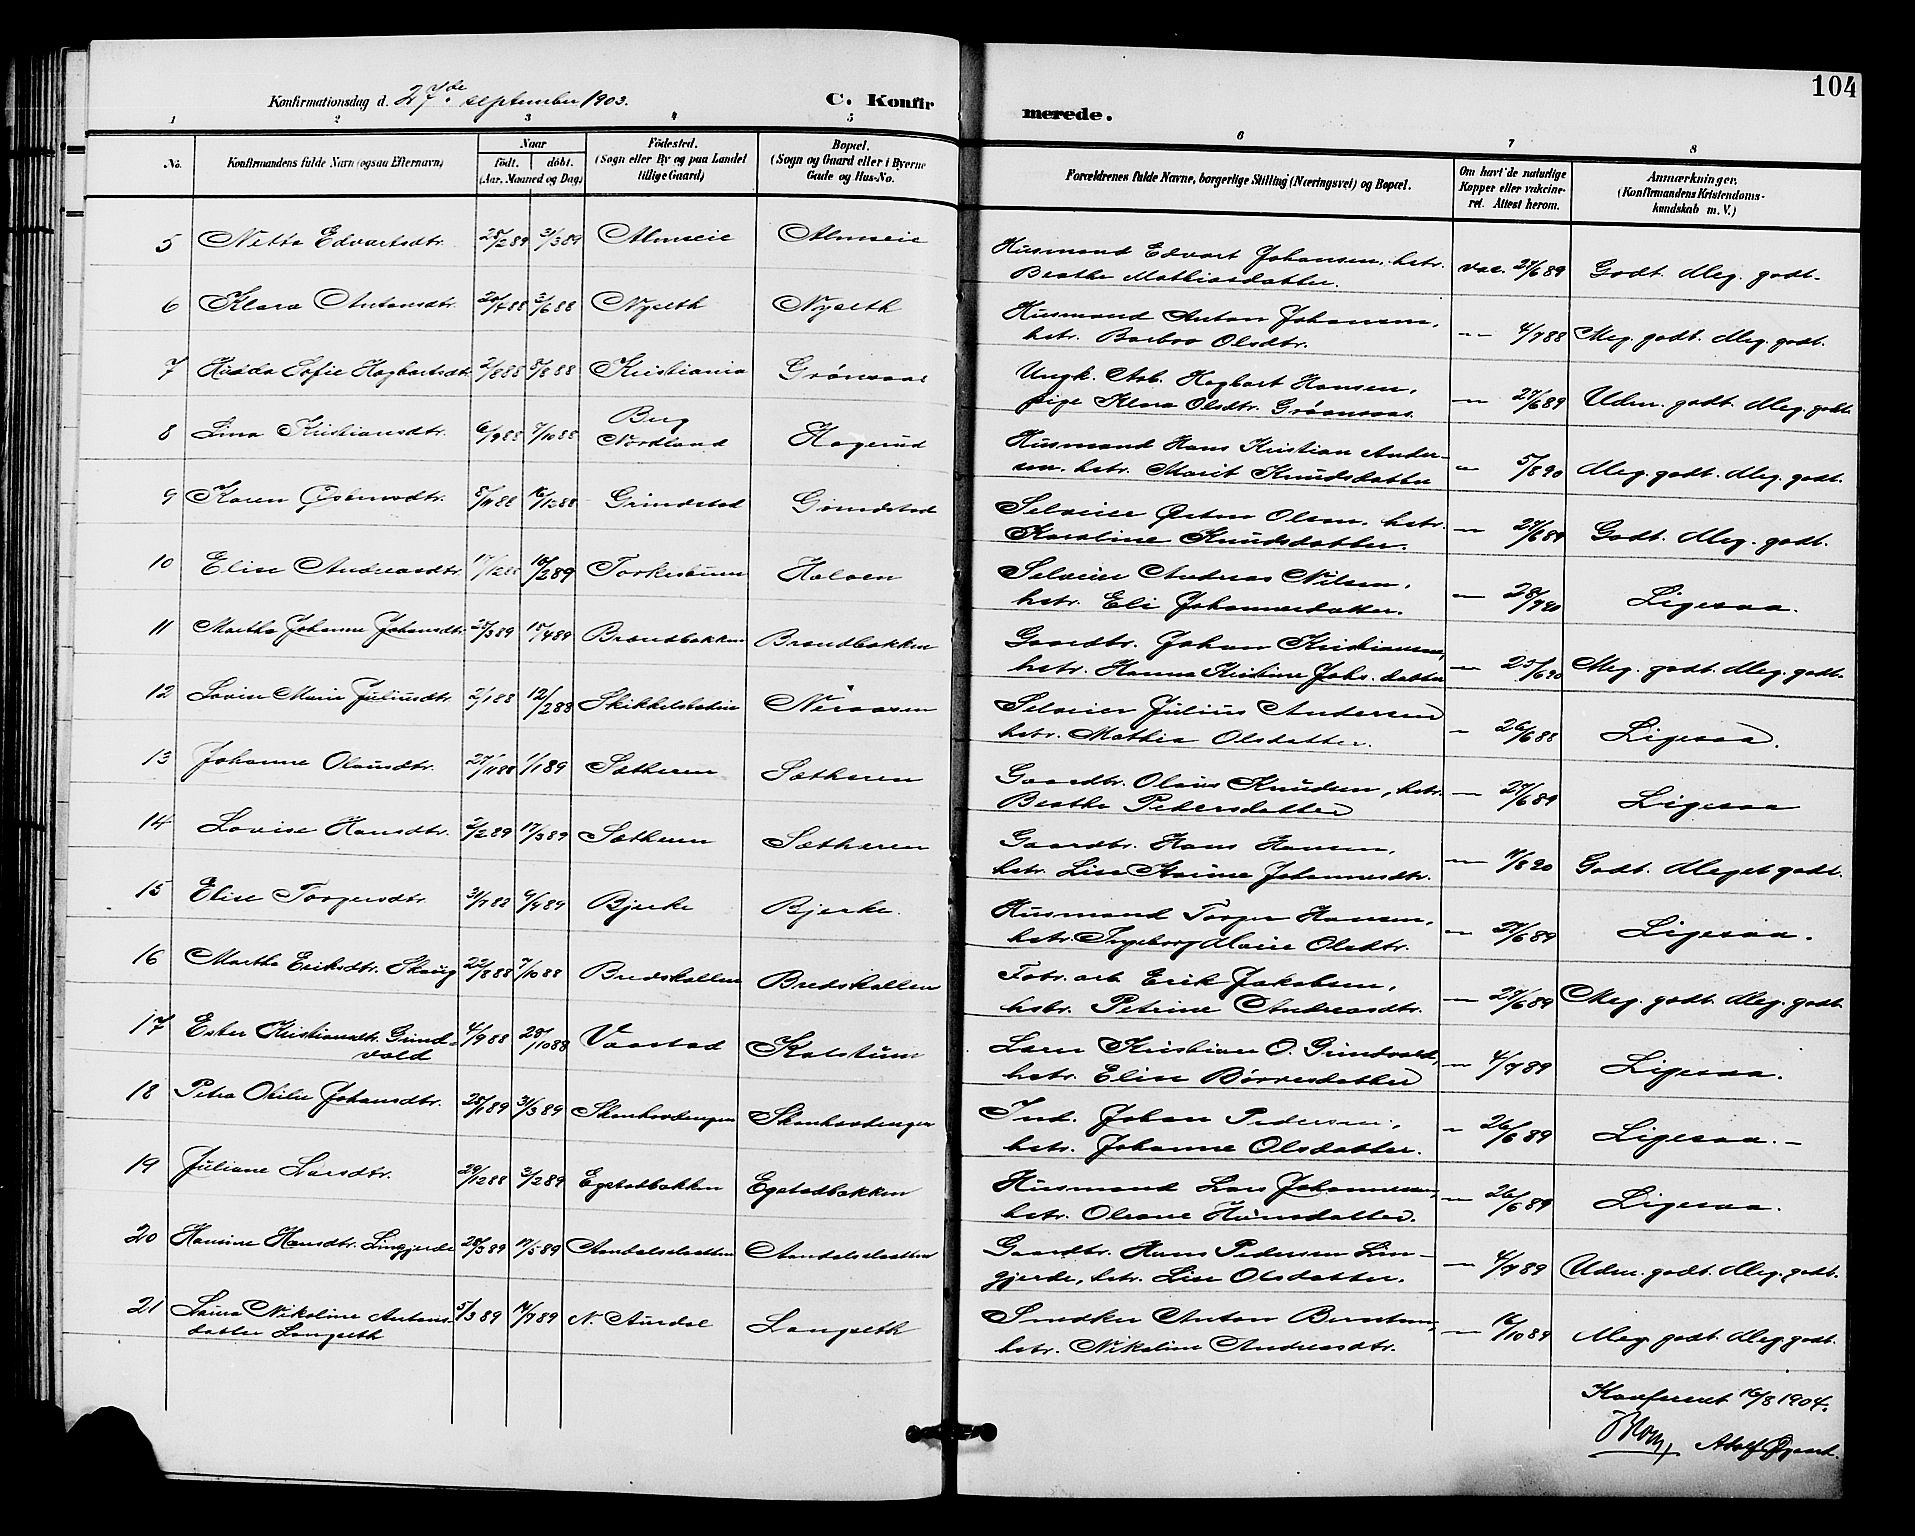 104
Konfirmationsdag d. 27de september 1903.
C. Konfirmerede.
1 2 3 4 5 6 7 8
No. Konfirmandens fulde Navn (ogsaa Efternavn) Naar født. døbt. (Aar, Maaned og Dag) Fødested. (Sogn eller By og paa Landet tillige Gaard) Bopæl. (Sogn og Gaard eller i Byerne Gade og Hus-No. Forældrenes fulde Navne, borgerlige Stilling (Næringsvei) og Bopæl. Om havt de naturlige Kopper eller vakcineret. Attest herom. Anmærkninger. (Konfirmandens Kristendomskundskab m. V.)
5 Netta Edvartsdtr. 28/2 89 31/3 89 Almseie Almseie Husmand Edvart Johansen, hstr. vac. 27/6 89 Godt. Meg. godt.
Beathe Mathiasdatter.
6 Klara Antonsdtr. 20/4 88 3/6 88 Nyseth Nyseth Husmand Anton Johansen, 4/7 88 Meg. godt. Meg. godt.
hstr. Barbro Olsdtr.
7 Sofie Hagbartsdtr. 5/8 88 Kristiania Grønsaas Ungk. Arb. Hagbart Hansen, 27/6 89 Udm. godt. Meg. godt.
pige Klara Olsdtr. Grønsaas.
8 Lina Kristiansdtr. 6/9 88 7/10 88 Berg Nordland Hagerud Husmand Hans Kristian Ander- 5/8 90 Meg. godt. Meg. godt.
sen. hstr. Marit Knudsdatter
9 Karen 5/11 88 16/12 88 Grindstad Grindstad Selveier Østen Olsen, hstr. 27/6 89 Godt. Meg. godt.
Karoline Knudsdatter.
10 Elise Andreasdtr. 17/12 88 10/2 89 Halven Selveier Andreas Nilsen, 28/7 90 Ligesaa.
hstr. Eli Johannesdatter.
11 Martha Johanne Johansdtr. 25/3 89 15/4 89 Brandbakken Brandbakken Gaardbr. Johan Kristiansen, 25/6 90 Meg. godt. Meg. godt.
hstr. Hanna Kristine Johs. datter
12 Lovise Marie Juliusdtr. 2/1 88 12/2 88 Skikkelstadeie Selveier Julius Andersen 26/6 88 Ligesaa.
hstr. Mathia Olsdatter.
13 Johanne Olausdtr. 27/11 88 1/1 89 Sætheren Sætheren Gaardbr. Olaus Knudsen, hstr. 27/6 89 Ligesaa
Beathe Pedersdatter
14 Lovise Hansdtr. 2/2 89 17/3 89 Sætheren Sætheren Gaardbr. Hans Hansen, 7/8 90 Godt. Meget godt.
hstr. Lise Karine Johannesdtr.
15 Elise Torgersdtr. Bjerke Bjerke. Husmand Torger Hansen, 27/6 89 Ligesaa.
hstr. Ingeborg Marie Olsdtr.
16 Martha Eriksdtr. Skaug 22/8 88 7/10 88 Bredskallen Bredskallen Fabr. arb Erik Jakobsen, 27/6 89 Meg. godt. Meg. godt.
hstr. Petrine Andreasdtr.
17 Ester Kristiansdtr. Grind- 4/9 88 28/10 88 Vaastad Kolstum Lærer Kristian O. Grindvold, 4/7 89 Ligesaa.
vold hstr. Elise Børresdatter
18 Petra Otilie Johansdtr. 28/1 89 31/3 89 Skonhovdengen Skonhovdengen Ind. Johan Pedersen, 26/6 89 Ligesaa.
hstr. Johanne Olsdatter.
19 Juliane Larsdtr. 29/12 88 3/2 89 Egstadbakken Egstadbakken Husmand Lars Johannesen, 26/6 89 Ligesaa.
hstr. Oleane Hansdatter.
20 Hansine Hansdtr. Lingjerde 28/3 89 17/5 89 Aandalsslaatten Aandalsslaatten Gaardbr. Hans Pedersen Lin- 4/7 89 Udm. godt. Meg. godt.
gjerde, hstr. Lise Olsdatter.
21 Laura Nikoline Antons- 5/3 89 14/7 89 N. Aurdal Langseth Snedker Anton Berntsen, 16/10 89 Meg. godt. Meg. godt.
datter Langseth hstr. Nikoline Andreasdtr.
Konfereret 16/8 1904.
Adolf Øgaard.